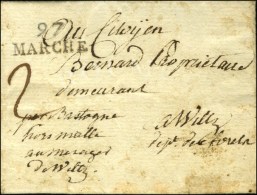 97
MARCHE
Au Citoyen
Bernard Propriétaire
demeurant
2
par Bastogne
hors malle
au messager
de Wiltz
a Wiltz
dept. des forets